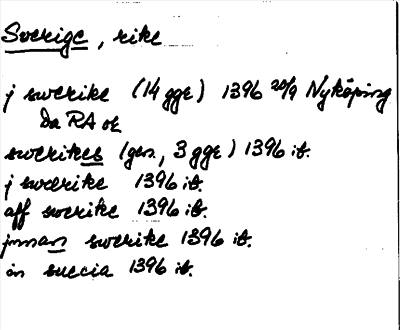 Sverige, rike
j swerike (14 gge) 1396 20/9 Nyköping
Da RA or
swerikes (gen., 3 gge) 1396 ib.
j swerike 1396 ib.
aff swerike 1396 ib.
jnnan swerike 1396 ib.
in suecia 1396 ib.